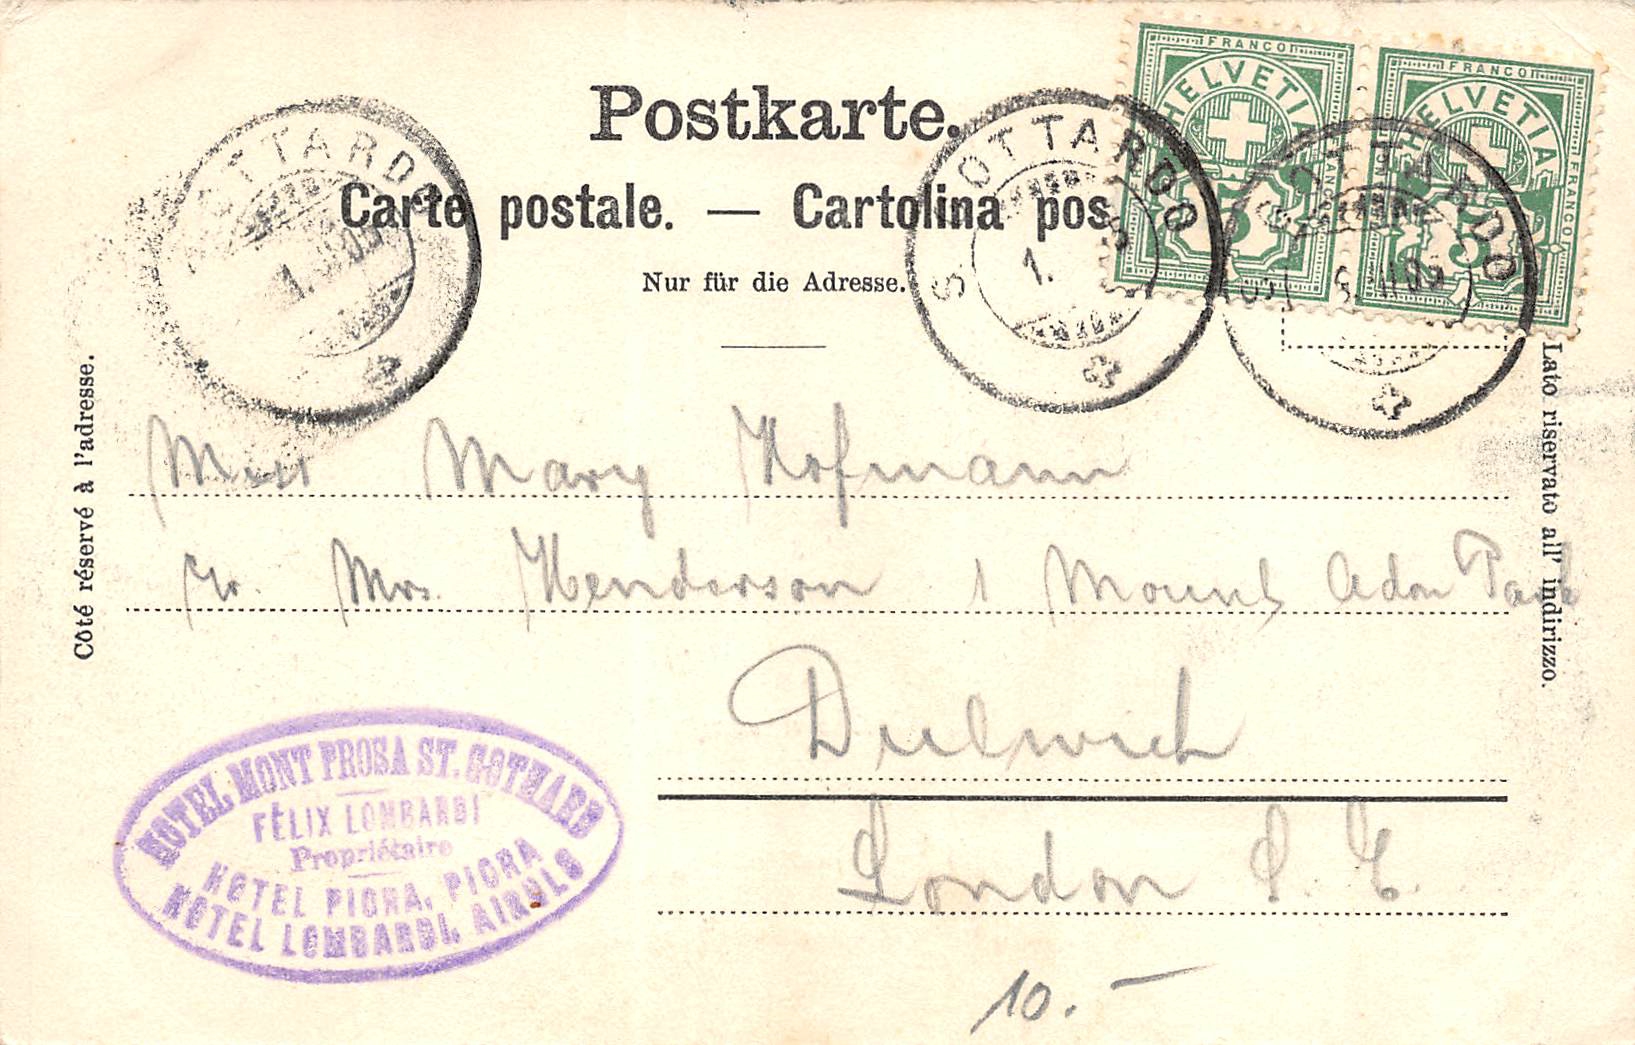 FRANCO FRANCO
HELVETIA HELVETIA
FRANCO FRANCO
5 5
Postkarte.
Carte postale. — Cartolina pos
Nur für die Adresse.
OTTARDO
S. GOTTARDO
1.
S. GOTTARDO
Côté réservé à l'adresse.
Lato riservato all' indirizzo.
Miss Mary Hofmann
Mrs. Henderson 1 Mount Adon Park
Dulwich
London S. E.
HOTEL MONT PROSA ST. GOTHARD
FÉLIX LOMBARDI
Propriétaire
HOTEL PIORA, PIORA
HOTEL LOMBARDI, AIROLO
10.–